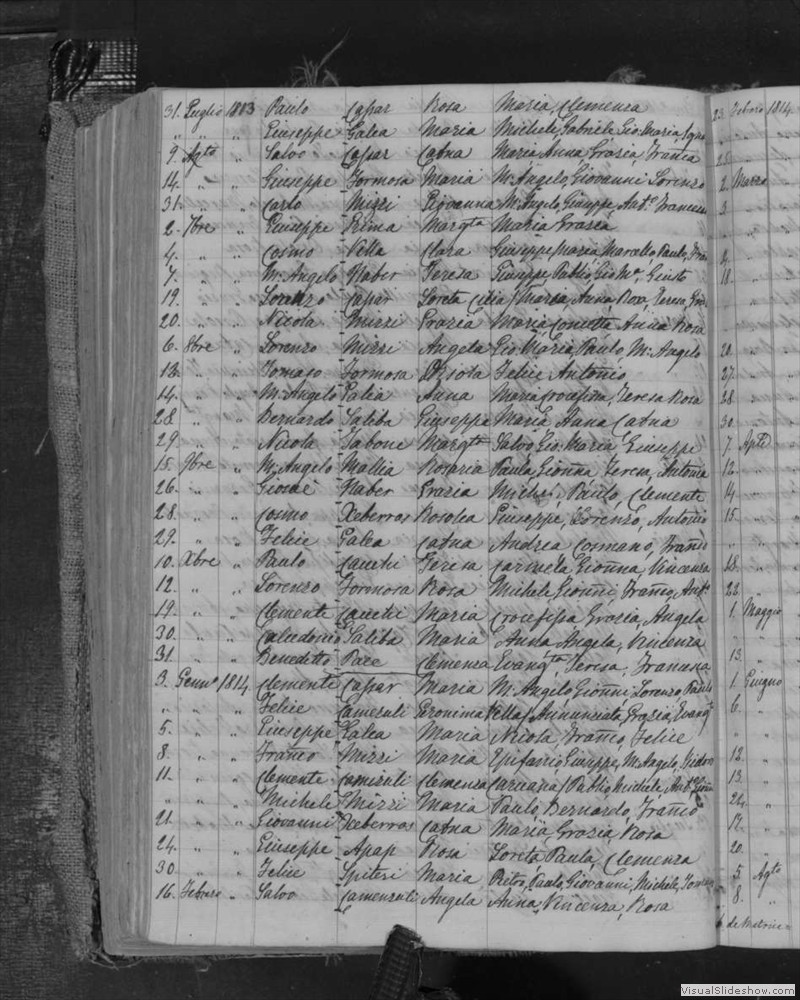 31. Luglio 1813 Paulo Caşar Rosa Maria, Clemenza
" " " Giuseppe Galea Maria Michele, Gabriele, Gio: Maria
9. Agto " Salvo Caşar Catna Maria Anna, Grazia, Franca
14. " " Giuseppe Formosa Maria M. Angelo, Giovanni Lorenzo
31. " " Carlo Mizzi Giovanna M. Angelo, Giuseppe, Ant.o Francesco
2. 7bre " Giuseppe Grima Margta Maria Grazia
4. " " Cosmo Vella Clara Giuseppe Maria, Marcello, Paulo,
7. " " M. Angelo Haber Teresa Giuseppe, Publio, Giusto
19. " " Lorenzo Caşar Loreta Maria, Anna Rosa, Teresa,
20. " " Nicola Mizzi Grazia Maria Concetta, Anna Rosa
6. 8bre " Lorenzo Mizzi Angela Gio. Maria, Paulo, M. Angelo
13. " " Tomaso Formosa Felice Antonio
14. " " M. Angelo Galea Anna Maria Crocefissa, Teresa Rosa
28 " " Bernardo Saliba Giuseppa Maria, Anna Catna
29. " " Nicola Tabone Margta Salvo, Gio: Maria, Giuseppe
15. 9bre " M. Angelo Mallia Rosaria Paula, Gionna, Teresa, Antonia
26. " " Giosuè Haber Grazia Michele, Paulo, Clemente
28. " " Cosmo Xeberras Rosolea Giuseppe, Lorenzo, Antonio
29. " " Felice Galea Catna Andrea Cosmano, Franco
10. Xbre " Paulo Cauchi Teresa Carmela, Gionna, Vincenza
12. " " Lorenzo Formosa Rosa Michele, Gionni, Franco, Ant.o
19. " " Clemente Cauchi Maria Crocefissa, Grazia, Angela
30. " " Calcedonio Saliba Maria Anna Angela, Vincenza
31. " " Benedetto Pace Clemenza Evangta, Teresa,
3. Genn.o 1814 Clemente Caşar Maria M. Angelo, Gionni, Lorenzo, Paulo
" " " Felice Camenzuli Geronima Vella, Annunciata, Grazia, Evangta
5. " " Giuseppe Galea Maria Nicola, Franco, Felice
8. " " Franco Mizzi Maria Epifanio, Giuseppe, M. Angelo, Isidoro
11. " " Clemente Camenzuli Clemenza Caruana, Publio, Michele, Ant.o
" " " Michele Mizzi Maria Paulo, Bernardo, Franco
21. " " Giovanni Xeberras Catna Maria, Grazia, Rosa
24. " " Giuseppe Apap Rosa Loreta Paula, Clemenza
30 " " Felice Spiteri Maria Paulo, Giovanni, Michele,
16. Febraro " Salvo Camenzuli Angela Anna, Vincenza, Rosa
23. Febraro 1814.
25.
2. Marzo
3.
4.
18.
20.
27.
28
30.
7. Aple
12.
14.
15.
"
18.
22.
1. Maggio
"
13.
1. Giugno
6.
"
12.
13.
24.
17.
20.
5. Agto
8.
VisualSlideshow.com